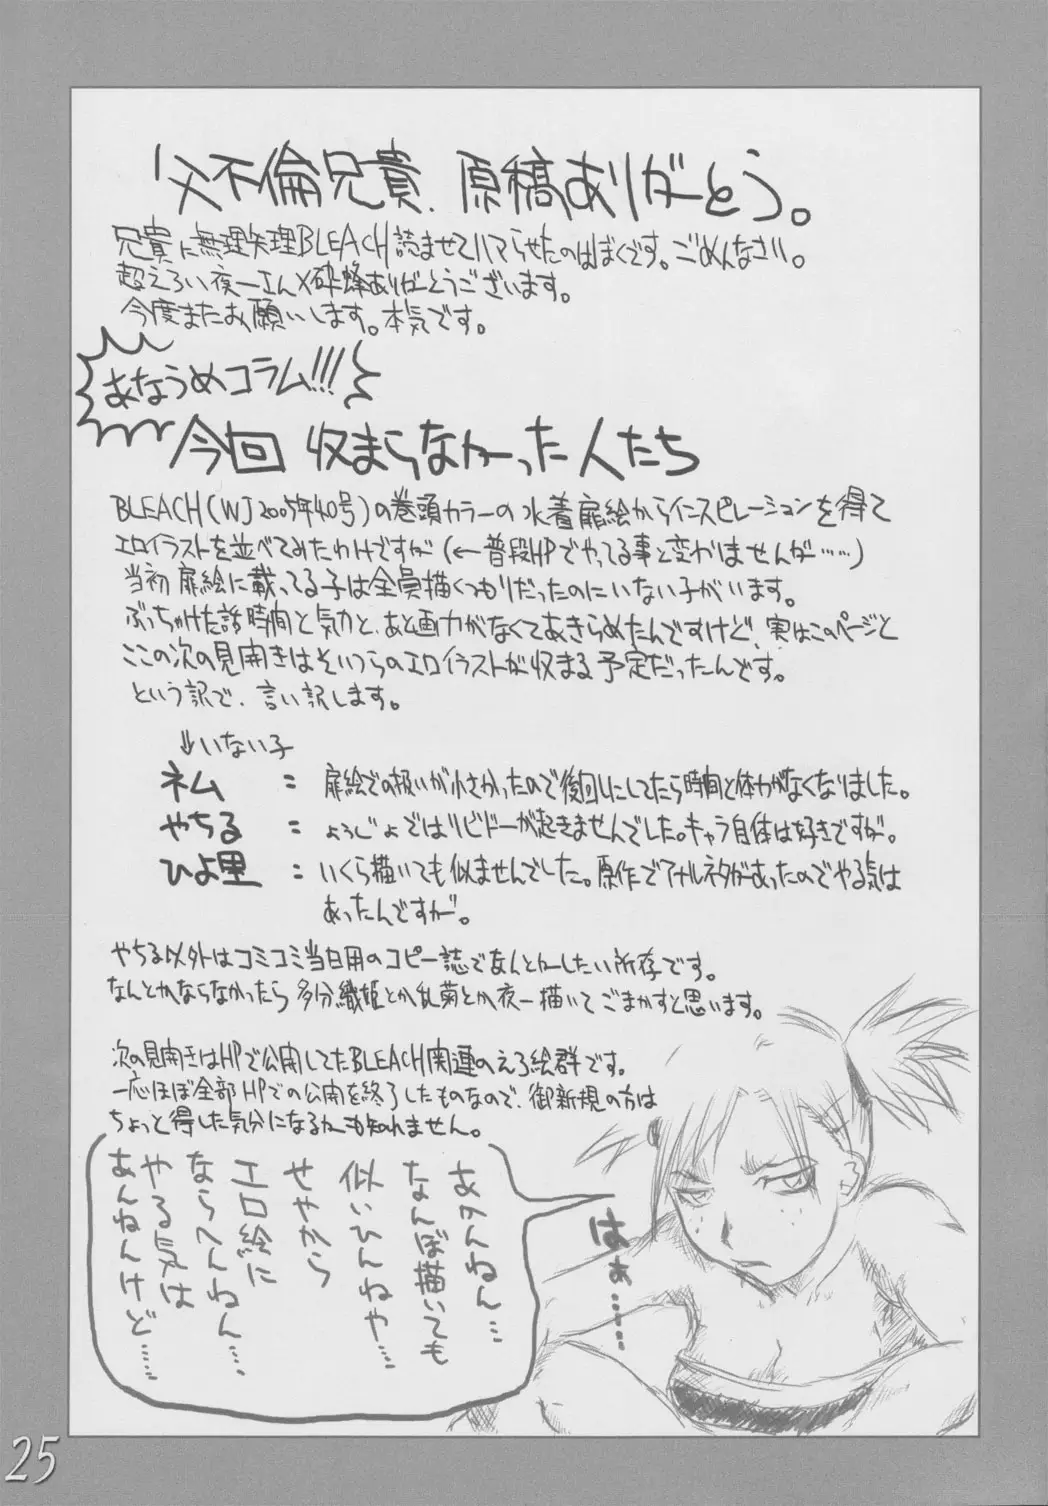 父不倫兄貴、原稿ありがーとう。
兄貴に無理矢理BLEACH読ませてハマらせたのはぼくです。ごめんなさい。
超えろい夜一さん×砕蜂ありがとうございます。
今度またお願いします。本気です。
あなうめコラム!!!
今回 収まらなかった人たち
BLEACH(WJ2005年40号)の巻頭カラーの水着扉絵からインスピレーションを得て
エロイラストを並べてみたわけですが(←普段HPでやってる事と変わりませんが……)
当初扉絵に載ってる子は全員描くつもりだったのにいない子がいます。
ぶっちゃけた話時間と気力と、あと画力がなくてあきらめたんですけど、実はこのページと
ここの次の見開きはそいつらのエロイラストが収まる予定だったんです。
という訳で、言い訳します。
↓いない子
ネム : 扉絵での扱いが小さかったので後回しにしてたら時間と体力がなくなりました。
やちる : ようじょではリビドーが起きませんでした。キャラ自体は好きですが。
ひよ里 : いくら描いても似ませんでした。原作でアナルネタがあったのでやる気は
あったんですが。
やちる以外はコミコミ当日用のコピー誌でなんとかしたい所存です。
なんとかならなかったら多分織姫とか乱菊とか夜一描いてごまかすと思います。
次の見開きはHPで公開してたBLEACH関連のえろ絵群です。
一応ほぼ全部HPでの公開を終了したものなので、御新規の方は
ちょっと得した気分になるかも知れません。
あかんねん…
なんぼ描いても
似いひんねや…
せやから
エロ絵に
ならへんねん…
やる気は
あんねんけど……
はぁ……
25